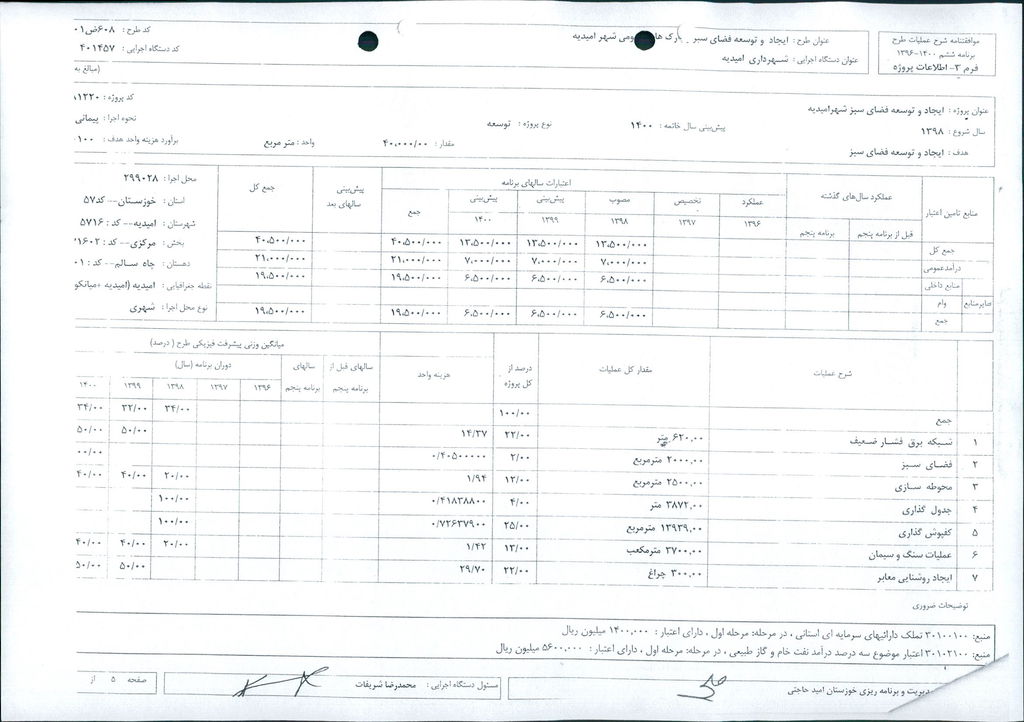 موافقتنامه شرح عملیات طرح
برنامه ششم ۱۴۰۰-۱۳۹۶
فرم ۳- اطلاعات پروژه
عنوان طرح: ایجاد و توسعه فضای سبز پارک های عمومی شهر امیدیه
عنوان دستگاه اجرایی: شهرداری امیدیه
کد طرح: ۶۰۸ض۰۱
کد دستگاه اجرایی: ۴۰۱۴۵۷
(مبالغ به
عنوان پروژه: ایجاد و توسعه فضای سبز شهرامیدیه
کد پروژه: ۱۲۲۰
سال شروع: ۱۳۹۸ پیش‌بینی سال خاتمه: ۱۴۰۰ نوع پروژه: توسعه نحوه اجرا: پیمانی
هدف: ایجاد و توسعه فضای سبز مقدار: ۴۰،۰۰۰/۰۰ واحد: متر مربع برآورد هزینه واحد هدف: ۱۰۰
منابع تامین اعتبار عملکرد سال‌های گذشته اعتبارات سالهای برنامه پیش‌بینی سالهای بعد جمع کل
قبل از برنامه پنجم برنامه پنجم عملکرد ۱۳۹۶ تخصیص ۱۳۹۷ مصوب ۱۳۹۸ پیش‌بینی ۱۳۹۹ پیش‌بینی ۱۴۰۰ جمع
جمع کل ۱۳،۵۰۰/۰۰۰ ۱۳،۵۰۰/۰۰۰ ۱۳،۵۰۰/۰۰۰ ۴۰،۵۰۰/۰۰۰ ۴۰،۵۰۰/۰۰۰
درآمدعمومی ۷،۰۰۰/۰۰۰ ۷،۰۰۰/۰۰۰ ۷،۰۰۰/۰۰۰ ۲۱،۰۰۰/۰۰۰ ۲۱،۰۰۰/۰۰۰
منابع داخلی ۶،۵۰۰/۰۰۰ ۶،۵۰۰/۰۰۰ ۶،۵۰۰/۰۰۰ ۱۹،۵۰۰/۰۰۰ ۱۹،۵۰۰/۰۰۰
سایرمنابع وام
جمع ۶،۵۰۰/۰۰۰ ۶،۵۰۰/۰۰۰ ۶،۵۰۰/۰۰۰ ۱۹،۵۰۰/۰۰۰ ۱۹،۵۰۰/۰۰۰
محل اجرا: ۲۹۹۰۲۸
استان: خوزستان-- کد۵۷
شهرستان: امیدیه-- کد: ۵۷۱۶
بخش: مرکزی-- کد: ۱۶۰۲
دهستان: چاه سالم-- کد: ۰۱
نقطه جغرافیایی: امیدیه (امیدیه +میانکو
نوع محل اجرا: شهری
شرح عملیات مقدار کل عملیات درصد از کل پروژه هزینه واحد میانگین وزنی پیشرفت فیزیکی طرح (درصد)
سالهای قبل از برنامه پنجم سالهای برنامه پنجم دوران برنامه (سال)
۱۳۹۶ ۱۳۹۷ ۱۳۹۸ ۱۳۹۹ ۱۴۰۰
جمع ۱۰۰/۰۰ ۳۴/۰۰ ۳۲/۰۰ ۳۴/۰۰
۱ شبکه برق فشار ضعیف ۶۲۰,۰۰ متر ۲۲/۰۰ ۱۴/۳۷ ۵۰/۰۰ ۵۰/۰۰
۲ فضای سبز ۲۰۰۰,۰۰ مترمربع ۲/۰۰ ۰/۴۰۵۰۰۰۰۰ ۰۰/۰۰
۳ محوطه سازی ۲۵۰۰,۰۰ مترمربع ۱۲/۰۰ ۱/۹۴ ۲۰/۰۰ ۴۰/۰۰ ۴۰/۰۰
۴ جدول گذاری ۳۸۷۲,۰۰ متر ۴/۰۰ ۰/۴۱۸۳۸۸۰۰ ۱۰۰/۰۰
۵ کفپوش گذاری ۱۳۹۳۹,۰۰ مترمربع ۲۵/۰۰ ۰/۷۲۶۳۷۹۰۰ ۱۰۰/۰۰
۶ عملیات سنگ و سیمان ۳۷۰۰,۰۰ مترمکعب ۱۳/۰۰ ۱/۴۲ ۲۰/۰۰ ۴۰/۰۰ ۴۰/۰۰
۷ ایجاد روشنایی معابر ۳۰۰,۰۰ چراغ ۲۲/۰۰ ۲۹/۷۰ ۵۰/۰۰ ۵۰/۰۰
توضیحات ضروری
منبع: ۳۰۱۰۰۱۰۰ تملک دارائیهای سرمایه ای استانی ، در مرحله: مرحله اول ، دارای اعتبار: ۱۴۰۰,۰۰۰ میلیون ریال
منبع: ۳۰۱۰۲۱۰۰ اعتبار موضوع سه درصد درآمد نفت خام و گاز طبیعی ، در مرحله: مرحله اول ، دارای اعتبار: ۵۶۰۰,۰۰۰ میلیون ریال
مدیریت و برنامه ریزی خوزستان امید حاجتی
مسئول دستگاه اجرایی: محمدرضا شریفات
صفحه ۵ از